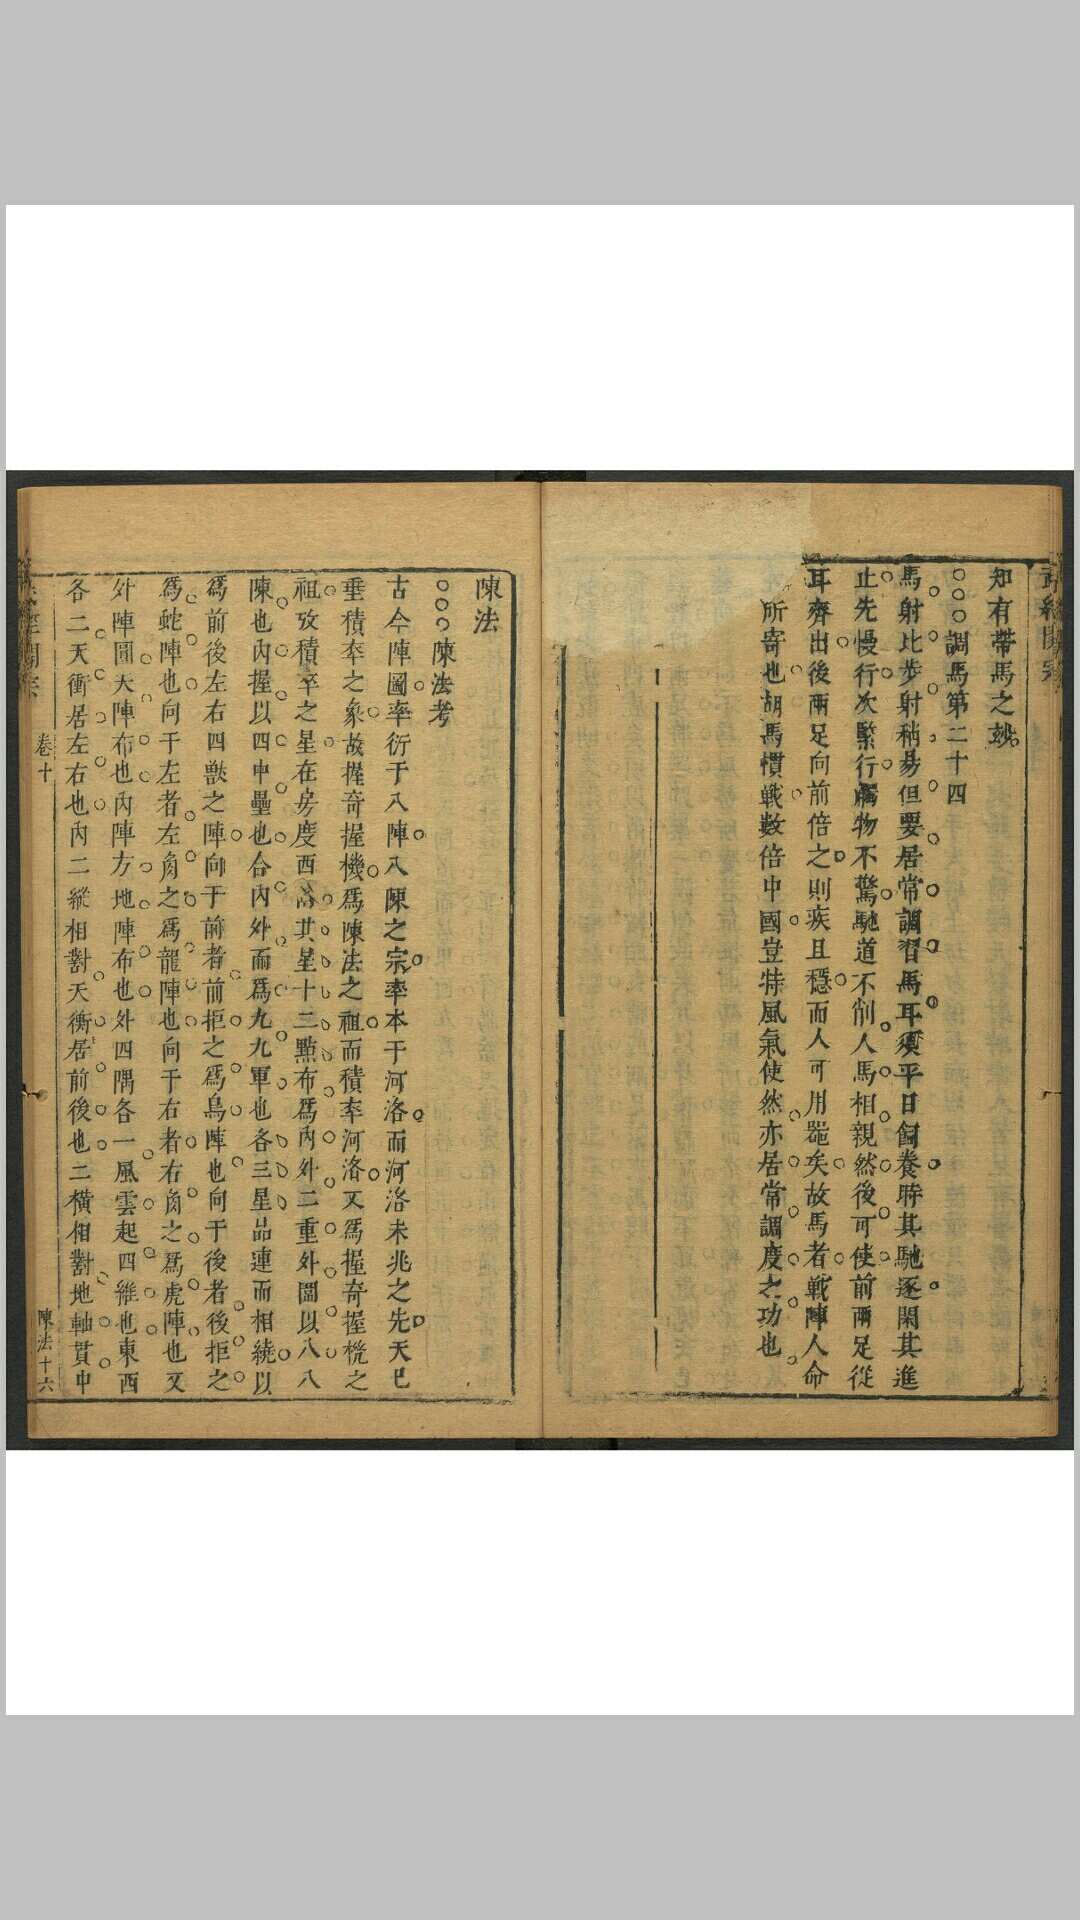 知有帶馬之玅
○○○調馬第二十四
馬射比步射稍易但要居常調習馬耳須平日飼養時其馳逐閑其進
止先慢行次緊行觸物不驚馳道不削人馬相親然後可使前兩足從
耳齊出後兩足向前倍之則疾且穩而人可用器矣故馬者戰陣人命
所寄也胡馬慣戰數倍中國豈特風氣使然亦居常調度之功也
陳法
○○○陳法考
古今陣圖率衍于八陣八陳之宗率本于河洛而河洛未兆之先天已
垂積卒之象故握奇握機爲陳法之祖而積卒河洛又爲握奇握機之
祖攷積卒之星在房度西南其星十二點布爲內外二重外圖以八八
陳也內握以四中壘也合內外而爲九九軍也各三星品連而相繞以
爲前後左右四獸之陣向于前者前拒之爲鳥陣也向于後者後拒之
爲蛇陣也向于左者左角之爲龍陣也向于右者右角之爲虎陣也又
外陣圓天陣布也內陣方地陣布也外四隅各一風雲起四維也東西
各二天衝居左右也內二縱相對天衡居前後也二橫相對地軸貫中
卷十
陳法十六